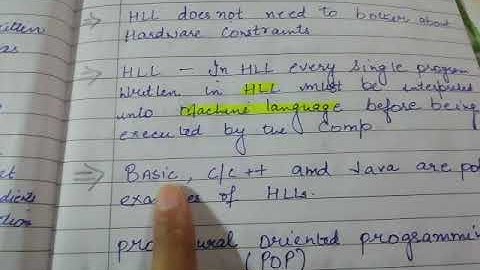 ⇒ HLL does not need to bother about
Hardware constraints
⇒ HLL - In HLL every single program
written in HLL must be interpreted
into Machine language before being
executed by the Comp
⇒ BASIC, C/C++ and Java are
of HLLs.
oriented programmin
(POP)